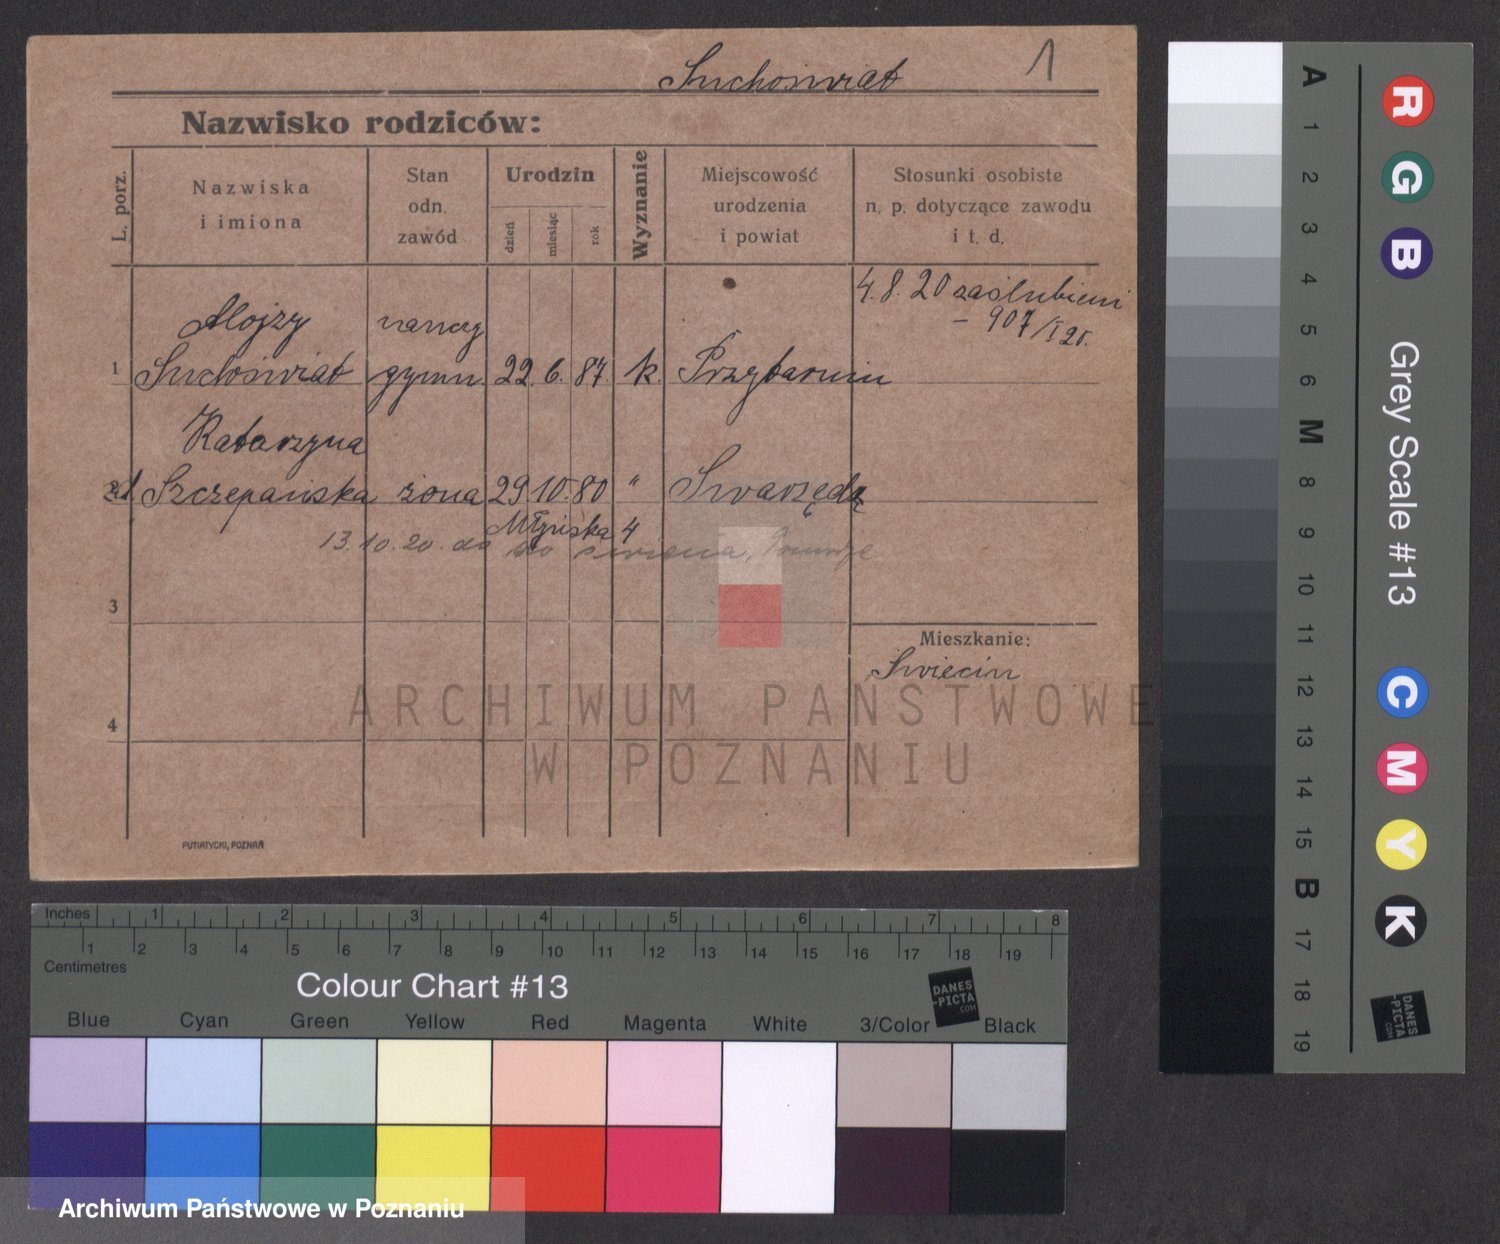 Suchoświat 1
Nazwisko rodziców:
L. porz.
Nazwiska
i imiona
Stan
odn.
zawód
Urodzin
dzień
miesiąc
rok
Wyznanie
Miejscowość
urodzenia
i powiat
Stosunki osobiste
n. p. dotyczące zawodu
i t. d.
4. 8. 20 zaślubieni
- 907/I 20.
Alojzy naucz
1 Suchoświat gymn 22. 6. 87. k.
Katarzyna
Szczepańska żona 29 10. 80 " Swarzędz
Młyńska 4
13. 10. 20. do
3
Mieszkanie:
Swiecin
4
PUTIATYCKI, POZNAŃ
ARCHIWUM PAŃSTWOWE
W POZNANIU
Inches 1 2 3 4 5 6 7 8
1 2 3 4 5 6 7 8 9 10 11 12 13 14 15 16 17 18 19
Centimetres
Colour Chart #13
DANES
-PICTA
.COM
Blue Cyan Green Yellow Red Magenta White 3/Color Black
Archiwum Państwowe w Poznaniu
A 1 2 3 4 5 6 M 8 9 10 11 12 13 14 15 B 17 18 19
R G B Grey Scale #13 C M Y K
DANES
-PICTA
.COM